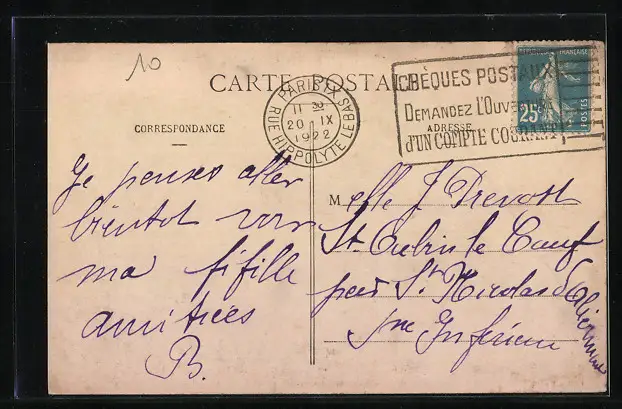 10
CARTE POSTALE
CORRESPONDANCE
ADRESSE
PARIS IX
11 30
20 IX
1922
RUE HIPPOLYTE LEBAS
CHÈQUES POSTAUX
DEMANDEZ L'OUVERTURE
D'UN COMPTE COURANT
RÉPUBLIQUE FRANÇAISE
25c
POSTES
Je penses aller
bientot voir
ma fifille
amitiées
B.
Melle J. Prevost
St. Aubin le Cauf
près St Nicolas d'Aliermont
Sne Inferieure